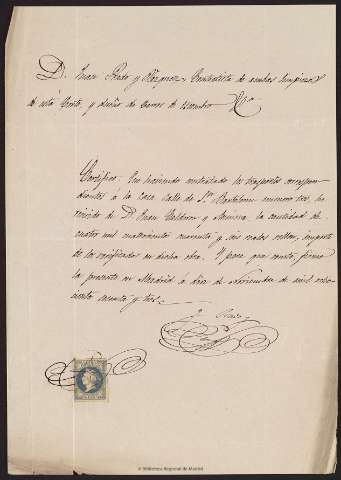 D. Juan Prado y Vázquez, Contratista de ambas limpiezas
de esta Corte, y dueño de Carros de
Certifico: Que habiendo contratado los trasportes correspon-
dientes á la Casa Calle de Sn. Bartolomé numero tres, he
recibido de Dn. Juan la cantidad de
cuatro mil cuatrocientos noventa y seis reales vellon, importe
de los verificados en dicha obra. Y para que conste, firmo
la presente en Madrid á diez de Noviembre de mil ocho-
cientos sesenta y tres.
© Biblioteca Regional de Madrid